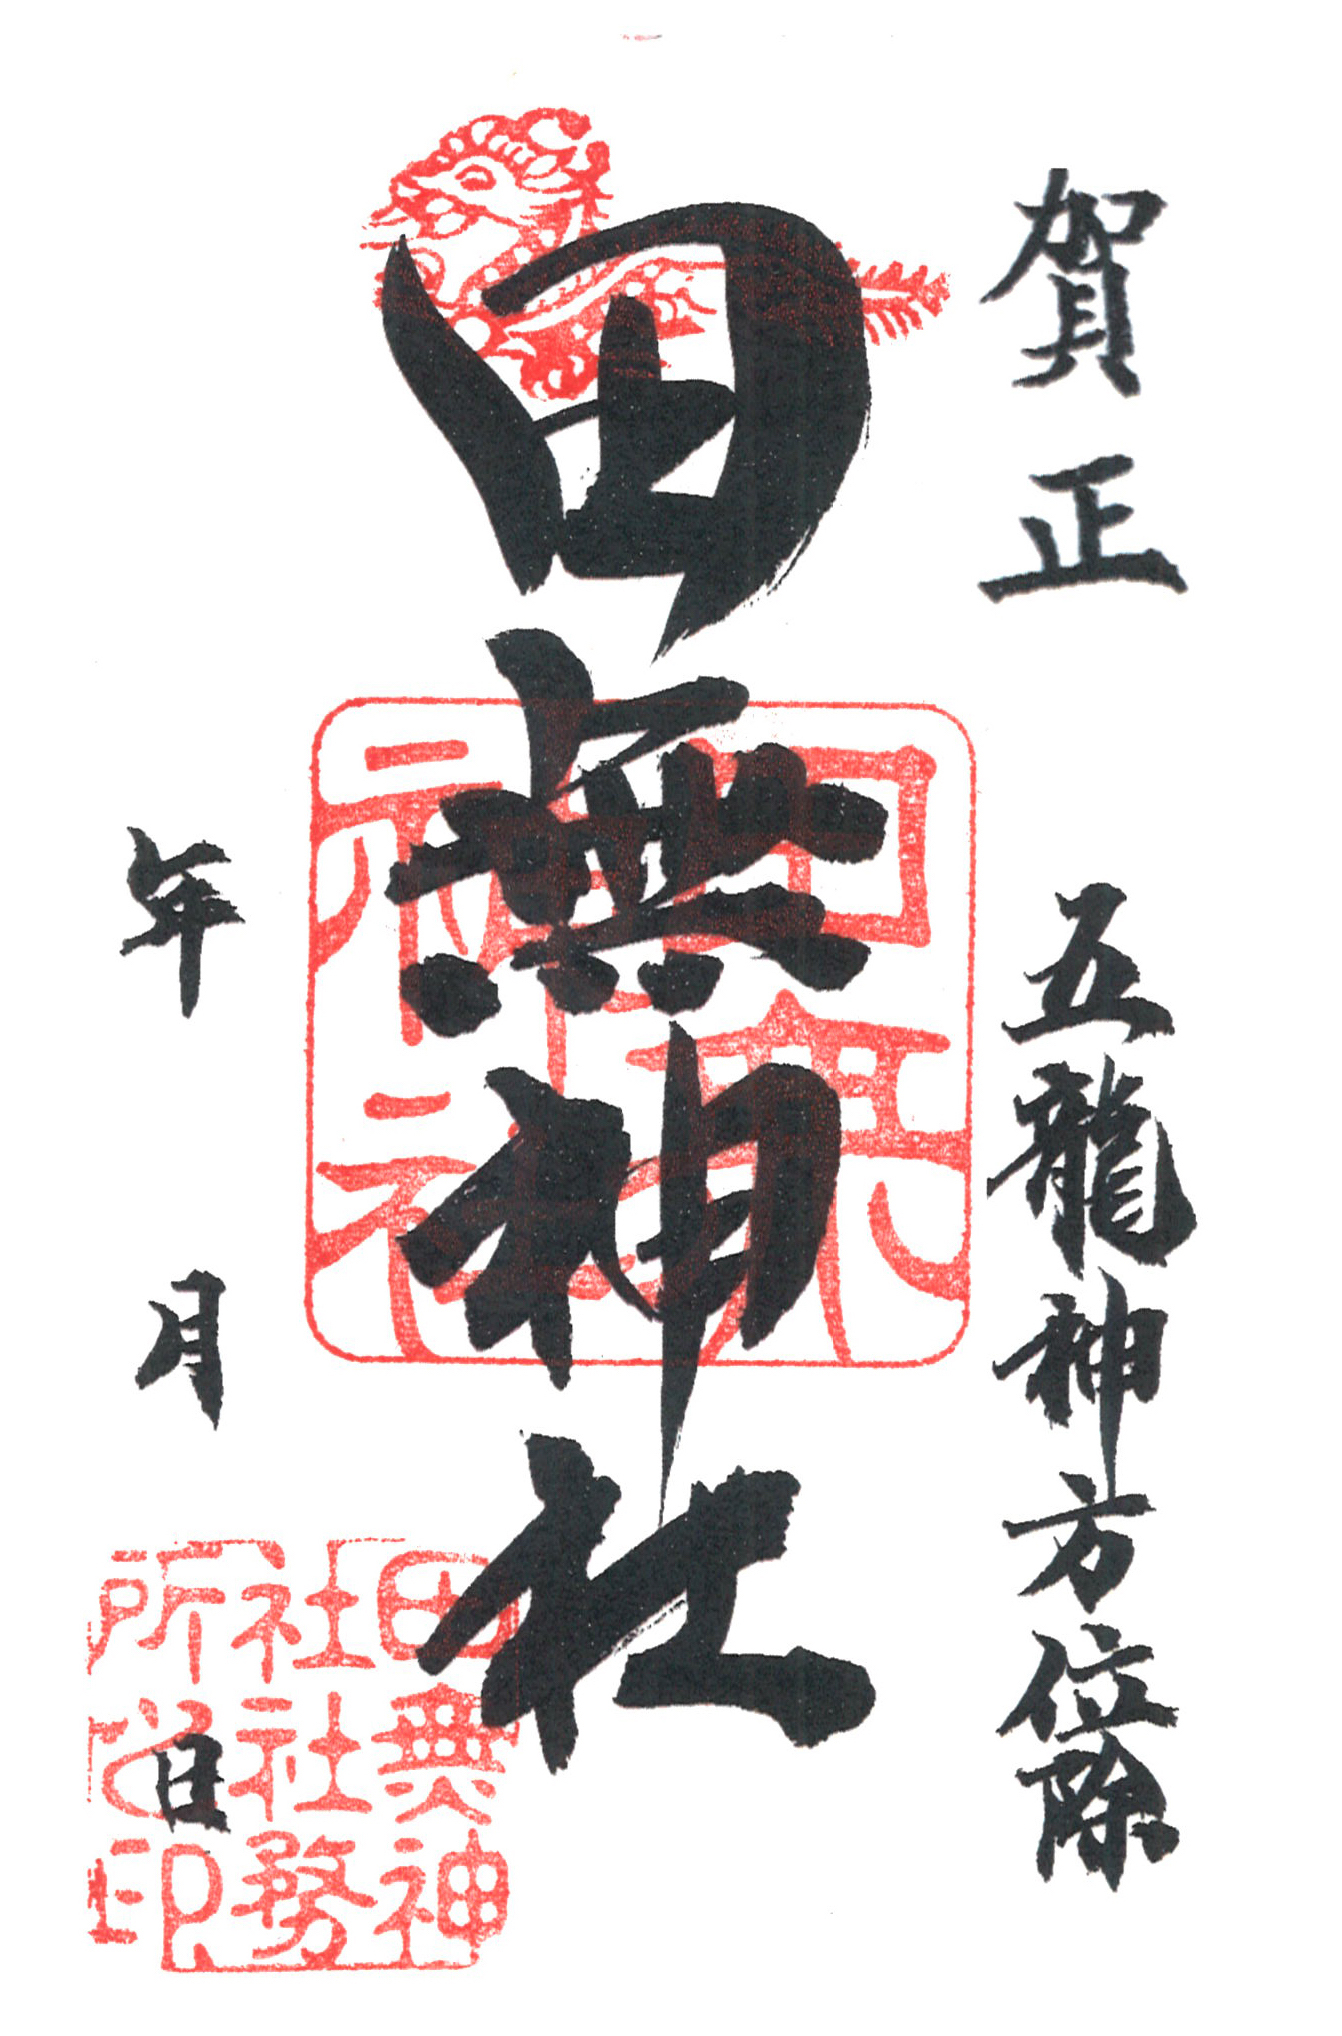 賀正
五龍神方位除
田無神社
年 月 日
田無神社
田無神
社社務
所之印